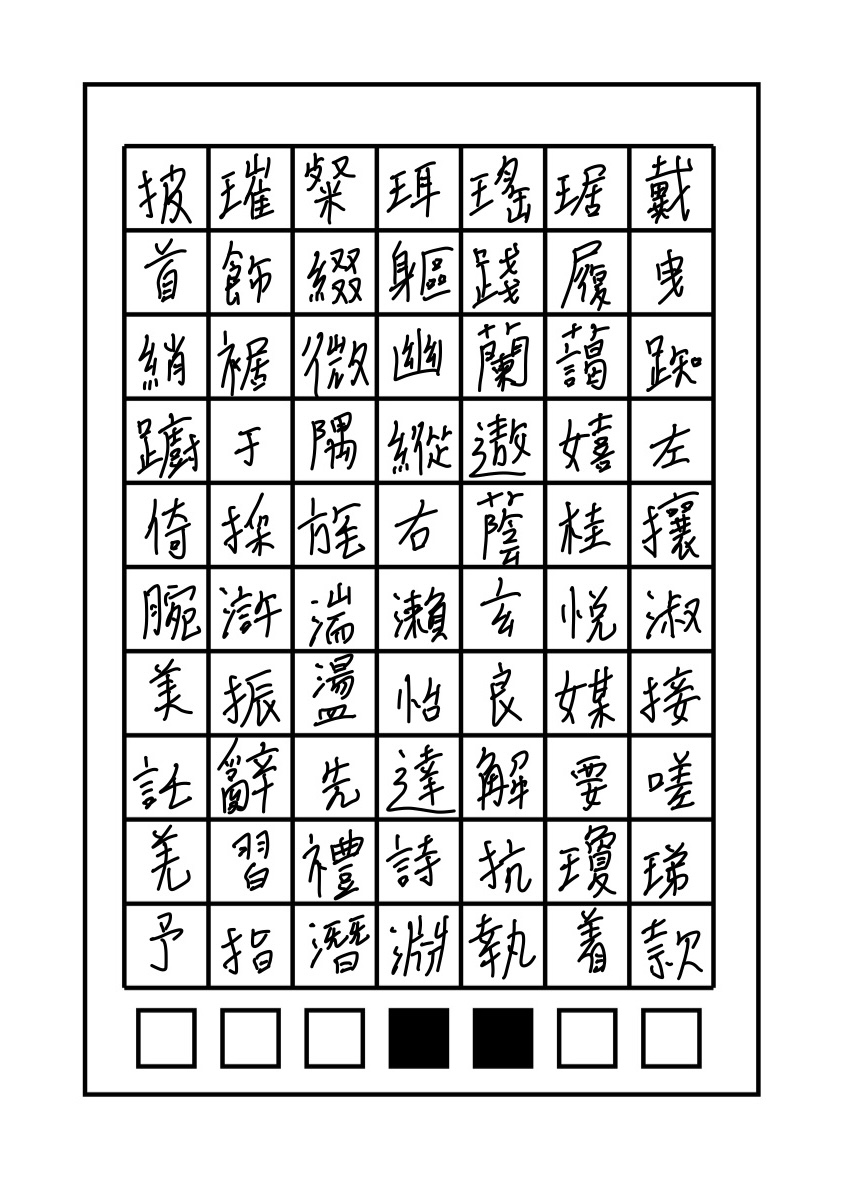 披璀粲珥瑤琚戴
首飾綴軀踐履曳
綃裾微幽蘭藹踟
躕于隅縱遨嬉左
倚採旄右蔭桂攘
腕滸湍瀨玄悅淑
美振盪怡良媒接
託辭先達解要嗟
羌習禮詩抗瓊珶
予指潛淵執着款